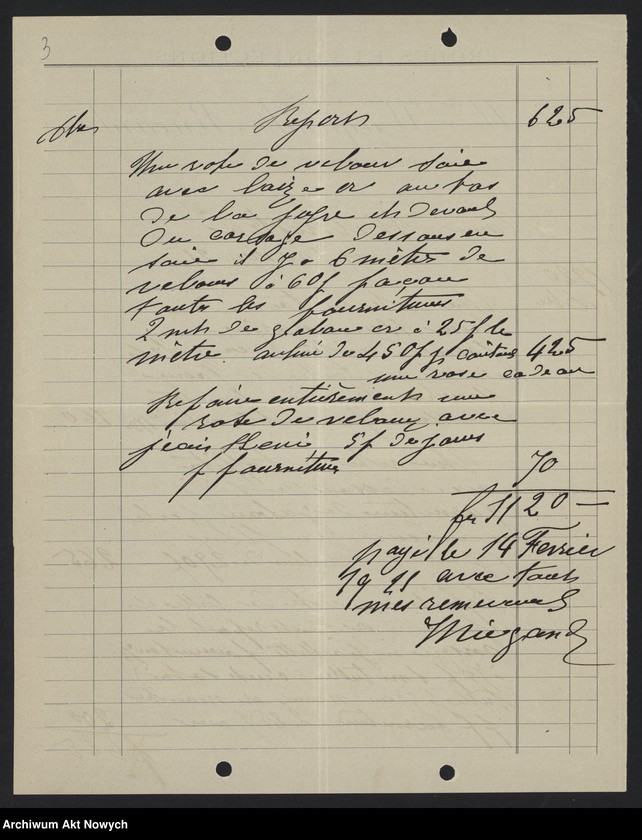 3
Report 625
Une robe de velours soie
avec laize or au bas
de la jupe et devant
Du corsage dessous en
soie il y a 6 mètres de
velours à 60f façon
toutes les fournitures
2 mts de galon or à 25f le
mètre. au lieu de 450f 425
une rose cadeau
Refaire entièrement une
robe de velours avec
5f de jours
f fournitures 70
fr 1120 —
payé le 14 Fevrier
1921 avec tous
mes remerciements
Archiwum Akt Nowych